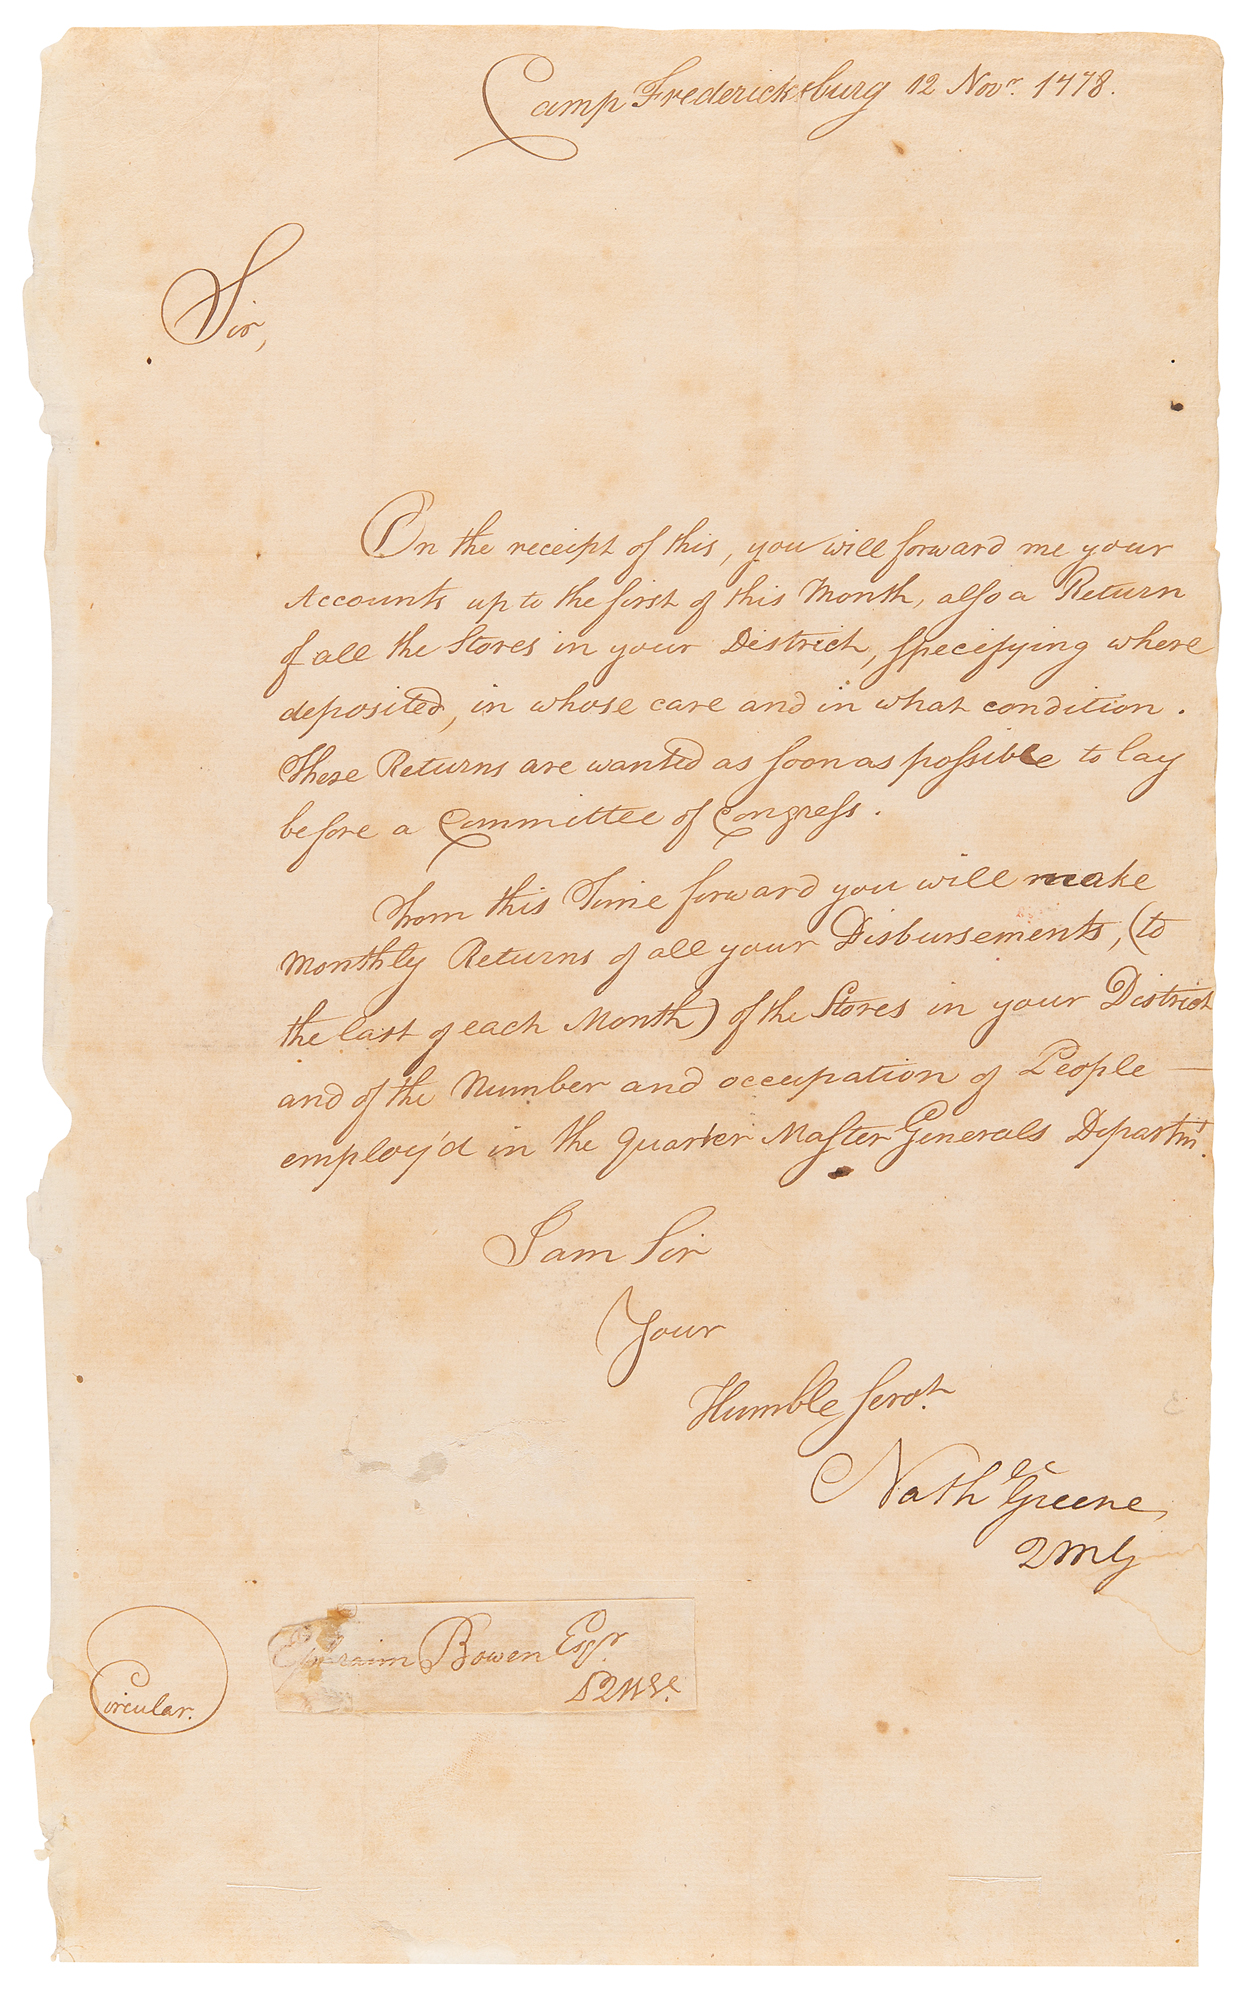 Camp Fredericksburg 12 Novr. 1778.
Sir,
On the receipt of this, you will forward me your
Accounts up to the first of this Month, also a Return
of all the Stores in your District, specifying where
deposited, in whose care and in what condition.
These Returns are wanted as soon as possible to lay
before a Committee of Congress.
From this Time forward you will make
Monthly Returns of all your Disbursements, (to
the last of each Month) of the Stores in your District
and of the Number and occupation of People —
employ'd in the Quarter Master Generals Departmt.
I am Sir
Your
Humble Servt.
Nath Greene
QMG
Ephraim Bowen Esqr.
DQMGl.
Circular.